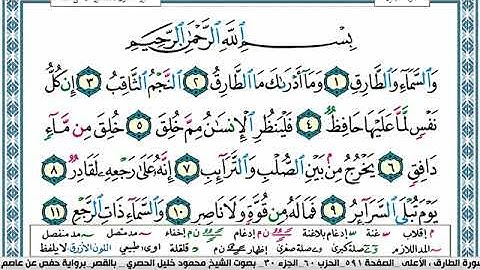 بِسْمِ ٱللَّهِ ٱلرَّحْمَٰنِ ٱلرَّحِيمِ
وَٱلسَّمَآءِ وَٱلطَّارِقِ ١ وَمَآ أَدْرَىٰكَ مَا ٱلطَّارِقُ ٢ ٱلنَّجْمُ ٱلثَّاقِبُ ٣ إِن كُلُّ
نَفْسٍ لَّمَّا عَلَيْهَا حَافِظٌ ٤ فَلْيَنظُرِ ٱلْإِنسَٰنُ مِمَّ خُلِقَ ٥ خُلِقَ مِن مَّآءٍ
دَافِقٍ ٦ يَخْرُجُ مِنۢ بَيْنِ ٱلصُّلْبِ وَٱلتَّرَآئِبِ ٧ إِنَّهُۥ عَلَىٰ رَجْعِهِۦ لَقَادِرٌ ٨
يَوْمَ تُبْلَى ٱلسَّرَآئِرُ ٩ فَمَا لَهُۥ مِن قُوَّةٍ وَلَا نَاصِرٍ ١٠ وَٱلسَّمَآءِ ذَاتِ ٱلرَّجْعِ ١١
م إقلاب غنة إدغام بلاغنة ن م إدغام ن م إخفاء مد متصل مد منفصل
المد اللازم صلة كبرى صلة صغرى إظهار ن م قلقلة اوى طبيعي اللون الأزرق لا يلفظ
سورة الطارق ، الأعلى . الصفحة ٥٩١ الحزب ٦٠ الجزء ٣٠ بصوت الشيخ محمود خليل الحصري . بالقصر برواية حفص عن عاصم